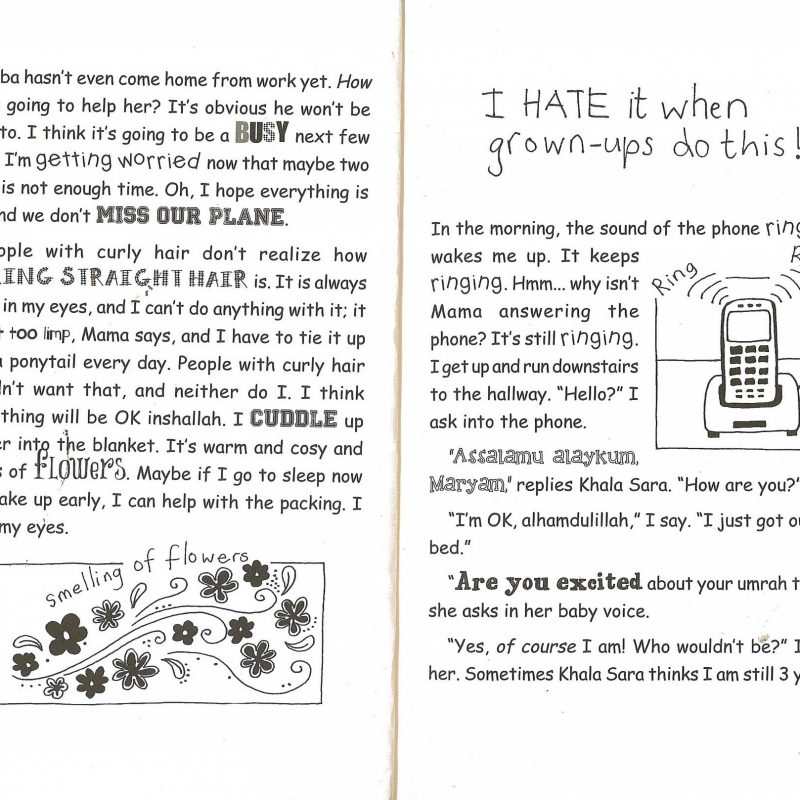 ba hasn't even come home from work yet. How
going to help her? It's obvious he won't be
to. I think it's going to be a BUSY next few
I'm getting worried now that maybe two
is not enough time. Oh, I hope everything is
nd we don't MISS OUR PLANE.
ople with curly hair don't realize how
ING STRAIGHT HAIR is. It is always
in my eyes, and I can't do anything with it; it
too limp, Mama says, and I have to tie it up
a ponytail every day. People with curly hair
dn't want that, and neither do I. I think
thing will be OK inshallah. I CUDDLE up
er into the blanket. It's warm and cosy and
s of flowers. Maybe if I go to sleep now
ake up early, I can help with the packing. I
my eyes.
smelling of flowers
I HATE it when
grown-ups do this!
In the morning, the sound of the phone ring
wakes me up. It keeps
ringing. Hmm... why isn't
Mama answering the
phone? It's still ringing.
I get up and run downstairs
to the hallway. "Hello?" I
ask into the phone.
Ring
R
"Assalamu alaykum,
Maryam," replies Khala Sara. "How are you?"
"I'm OK, alhamdulillah," I say. "I just got ou
bed."
"Are you excited about your umrah t
she asks in her baby voice.
"Yes, of course I am! Who wouldn't be?" I
her. Sometimes Khala Sara thinks I am still 3 y